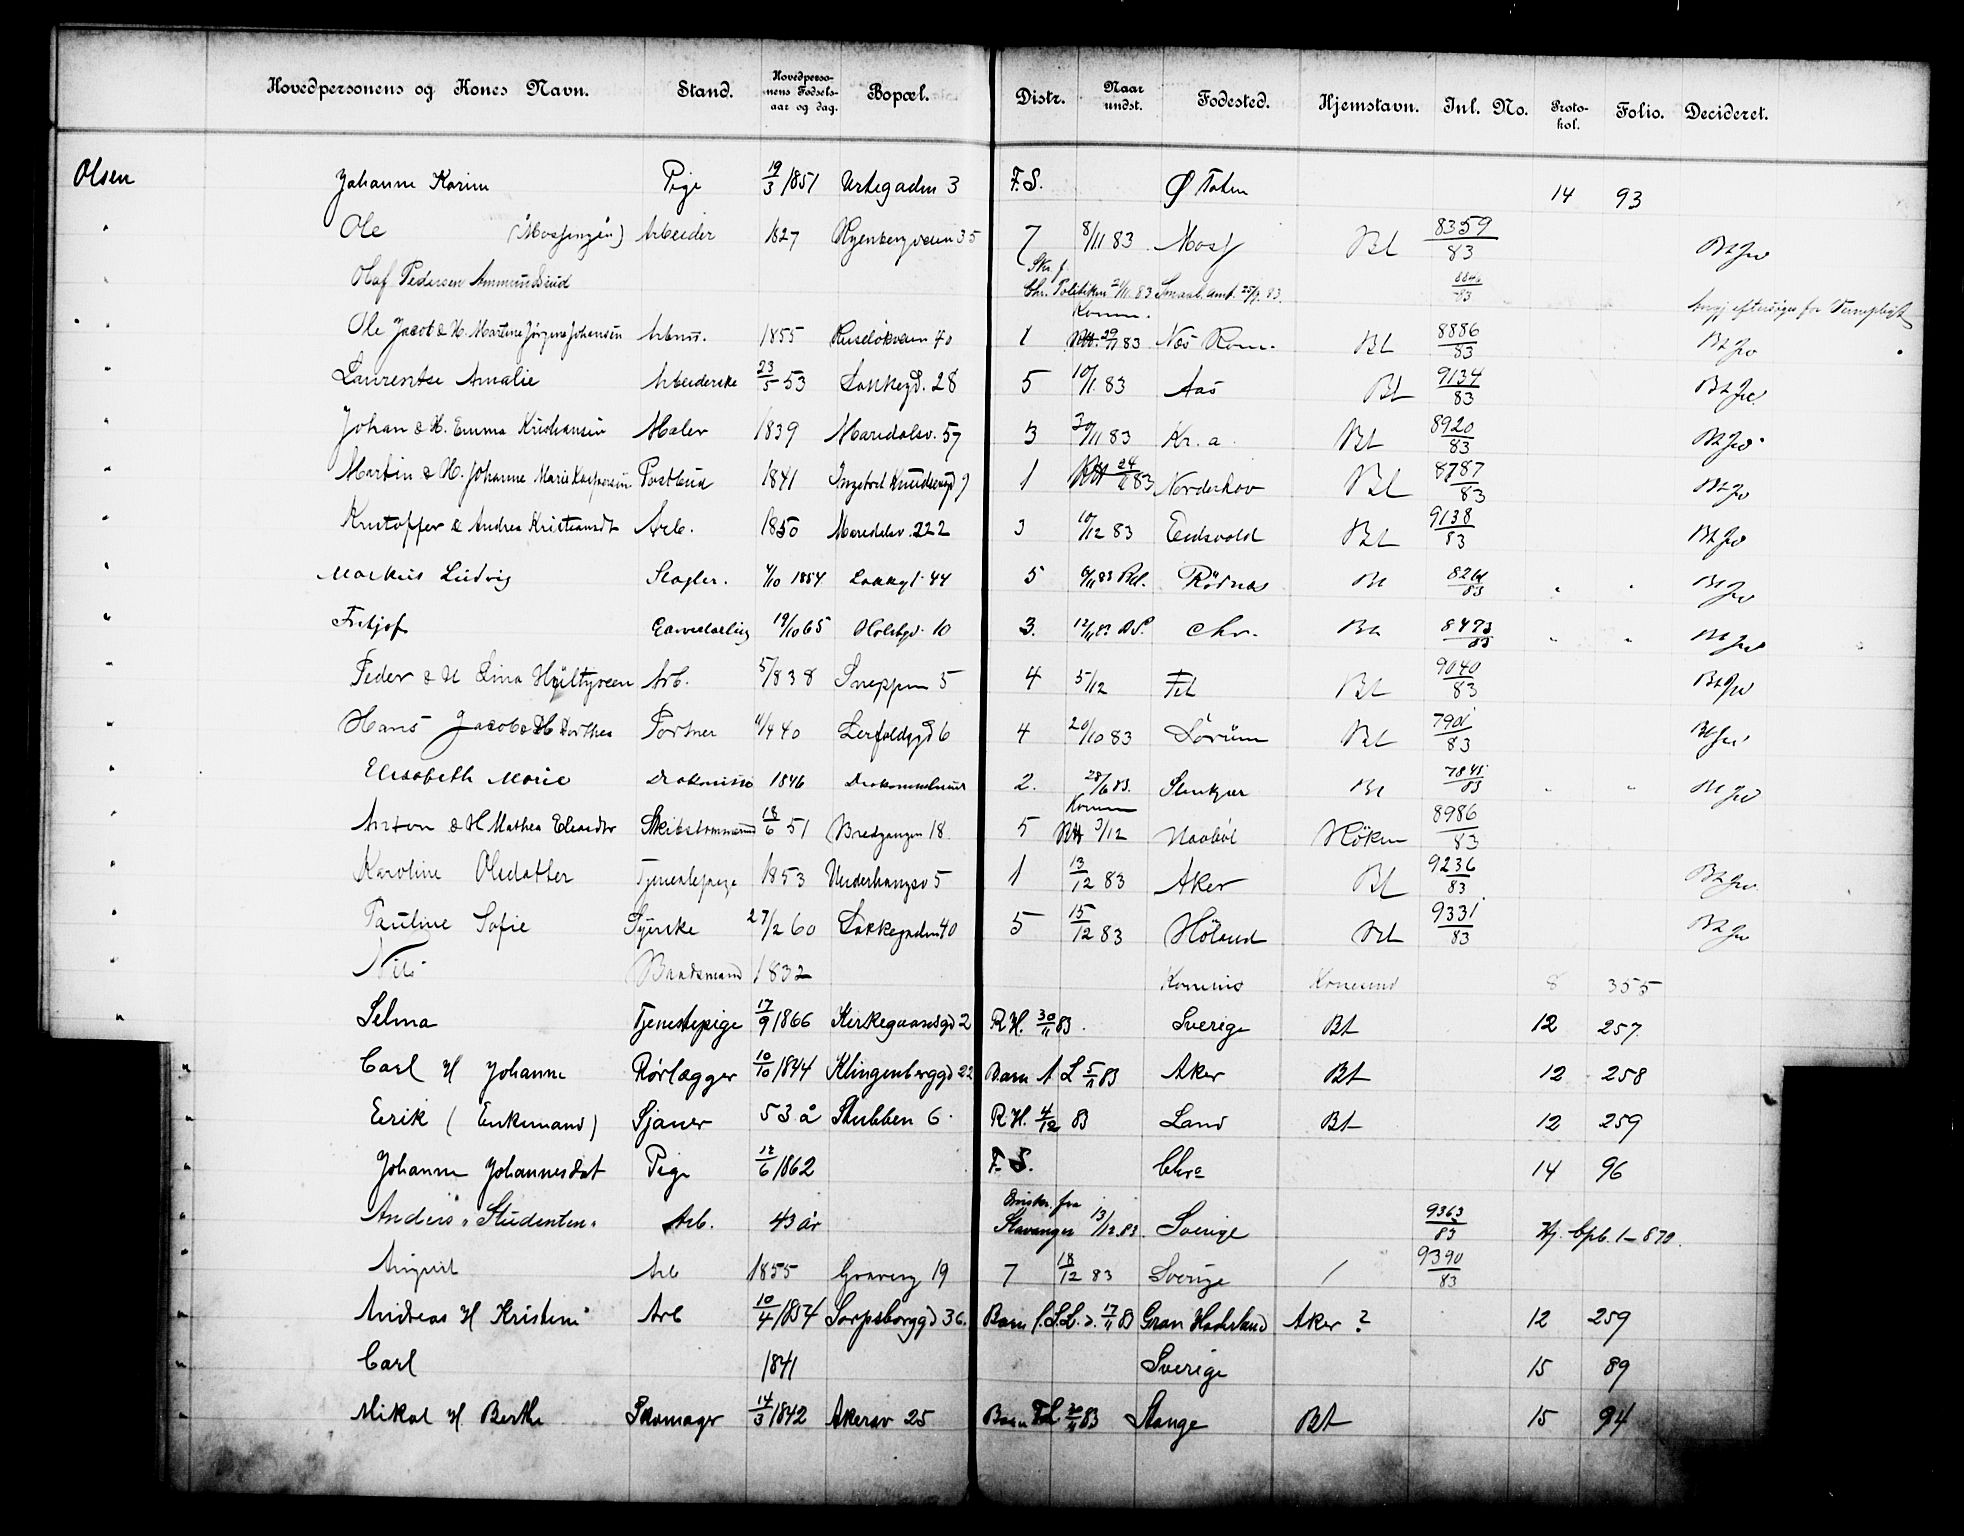 Hovedpersonens og Kones Navn. Stand. Hovedpersonens Fødselsaar og dag. Bopæl. Distr. Naar undst. Fødested. Hjemstavn. Inl. No. Protokol. Folio. Decideret.
Olsen Johanne Karine Pige 19/3 1851 Urtegaden 3 F.S. Ø Toten 14 93
" Ole (Mossingen) Arbeider 1827 Ryenbergveien 35 7 8/11 83 Moss Bt 8359/83
" Olaf Pedersen Ammundsrud Chr. Politikm 2/11 83 Smaal. amt.
" Ole Jacob & H. Martine Jørgine Johansen Arbms. 1855 Ruseløkveien 70 1 Komm. 29/11 83 Næs Rom. Bt 8886/83
" Laurentse Amalie Arbeiderske 23/5 53 Lakkegd. 28 5 10/11 83 Aas Bt 9134/83
" Johan & H. Emma Kristiansen Maler 1839 Maridalsv. 57 3 30/11 83 Kr.a. Bt 8920/83
" Martin & H. Johanne Marie Kaspersen Postbud 1841 Ingebret Knudsengd 9 1 24/11 83 Norderhov Bt 8787/83
" Kristoffer & Andrea Kristiansdt Arb. 1850 Maridalsv. 222 3 10/12 83 Eidsvold Bt 9138/83
" Markus Ludvig Slagter. 4/10 1854 Lakkegd. 44 5 6/11 83 Rødnæs Bt 83
" Fritjof Garverlærling 19/10 65 Holsbgd. 10 3. 12/11 83 Chr. Bt 8473/83
" Peder & H Lina Hültgreen Arb. 5/8 38 Sneppen 5 4 5/12 Fet Bt 9040/83
" Hans Jacob & H Dorthea Portner 11/4 40 Lerfaldsgd 6 4 20/10 83 Sørum Bt 7901/83
" Elisabeth Marie Diakonisse 1846 Diakonissehuset 2. 28/6 83. Stenkjær Bt 7841/83
" Anton & H Mathea Eliasdtr Skibstømmermd 18/6 51 Bredgangen 18. 5 Komm 3/12 Haabøl Höken 8986/83
" Karoline Olsdatter Tjenestepige 1853 Underhaugsv 5 1 13/12 83 Aker Bt 9236/83
" Pauline Sofie Syerske 27/2 60 Lakkegaden 40 5 15/12 83 Höland Bt 9331/83
" Nils Baadsmand 1832 8 355
" Selma Tjenestepige 17/9 1866 Kirkegaardsgd 2 R.H. 30/11 83. Sverige Bt 12 257
" Carl H Johanne Rørlægger 10/10 1844 Klingenberggd 22 Barn A L 5/11 83 Aker Bt 12 258
" Eirik (Enkemand) Sjauer 53 å Stubben 6. R.H. 4/12 83 Land Bt 12 259
" Johanne Johannesdat Pige 12/6 1862 F.S. Chra 14 96
" Anders "Studenten" Arb. 43 år Stavanger 13/12 83. Sverige 9363/83 Hj. Cpb. 1-870.
" August Arb 1855 Graverg 19 7 18/12 83 Sverige / 9390/83
" Andreas H Kristine Arb 10/4 1854 Sarpsborggd 36. Barn 17/11 83 Gran Hadeland Aker ? 12 259
" Carl 1841 Sverige 15 89
" Mikal H Berthe Skomager 14/3 1842 Akersv 25 Barn 20/11 83 Stange Bt 15 94